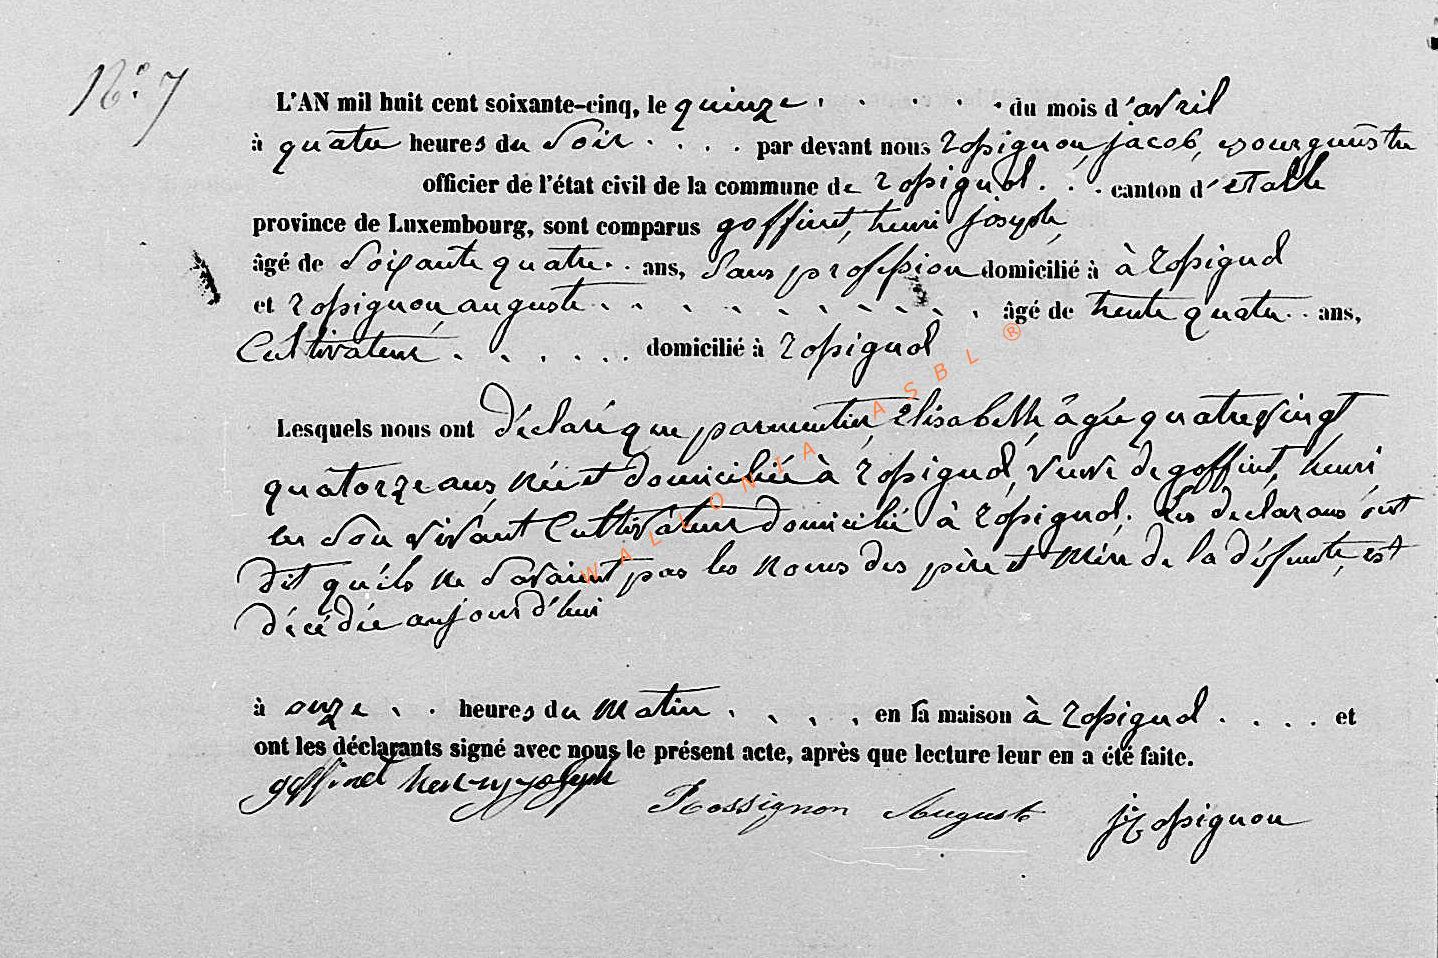 N° 7
L'AN mil huit cent soixante-cinq, le quinze . . . . . du mois d'avril
à quatre heures du soir . . . . par devant nous Rossignon, jacob, Bourguemstre
officier de l'état civil de la commune de Rossignol . . . canton d'Etalle
province de Luxembourg, sont comparus goffinet, henri joseph,
âgé de soixante quatre . . ans, sans profession domicilié à à Rossignol
et Rossignon, auguste . . . . . . . . . âgé de trente quatre . . ans,
Cultivateur . . . . . . domicilié à Rossignol
Lesquels nous ont déclaré que parmentier, Elisabeth, âgée quatrevingt
quatorze ans, née et domiciliée à Rossignol, veuve de goffinet, henri,
en son vivant Cultivateur domicilié à Rossignol. Les déclarans ont
dit qu'ils ne savaient pas les noms des père et mère de la défunte, est
décédée aujourd'hui
à onze . . heures du matin . . . . en la maison à Rossignol . . . . et
ont les déclarants signé avec nous le présent acte, après que lecture leur en a été faite.
goffinet henry joseph Rossignon Auguste j Rossignon
WALLONIA ASBL ®